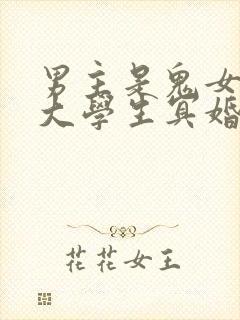 男主是鬼女
大學生冥婚
花花女王